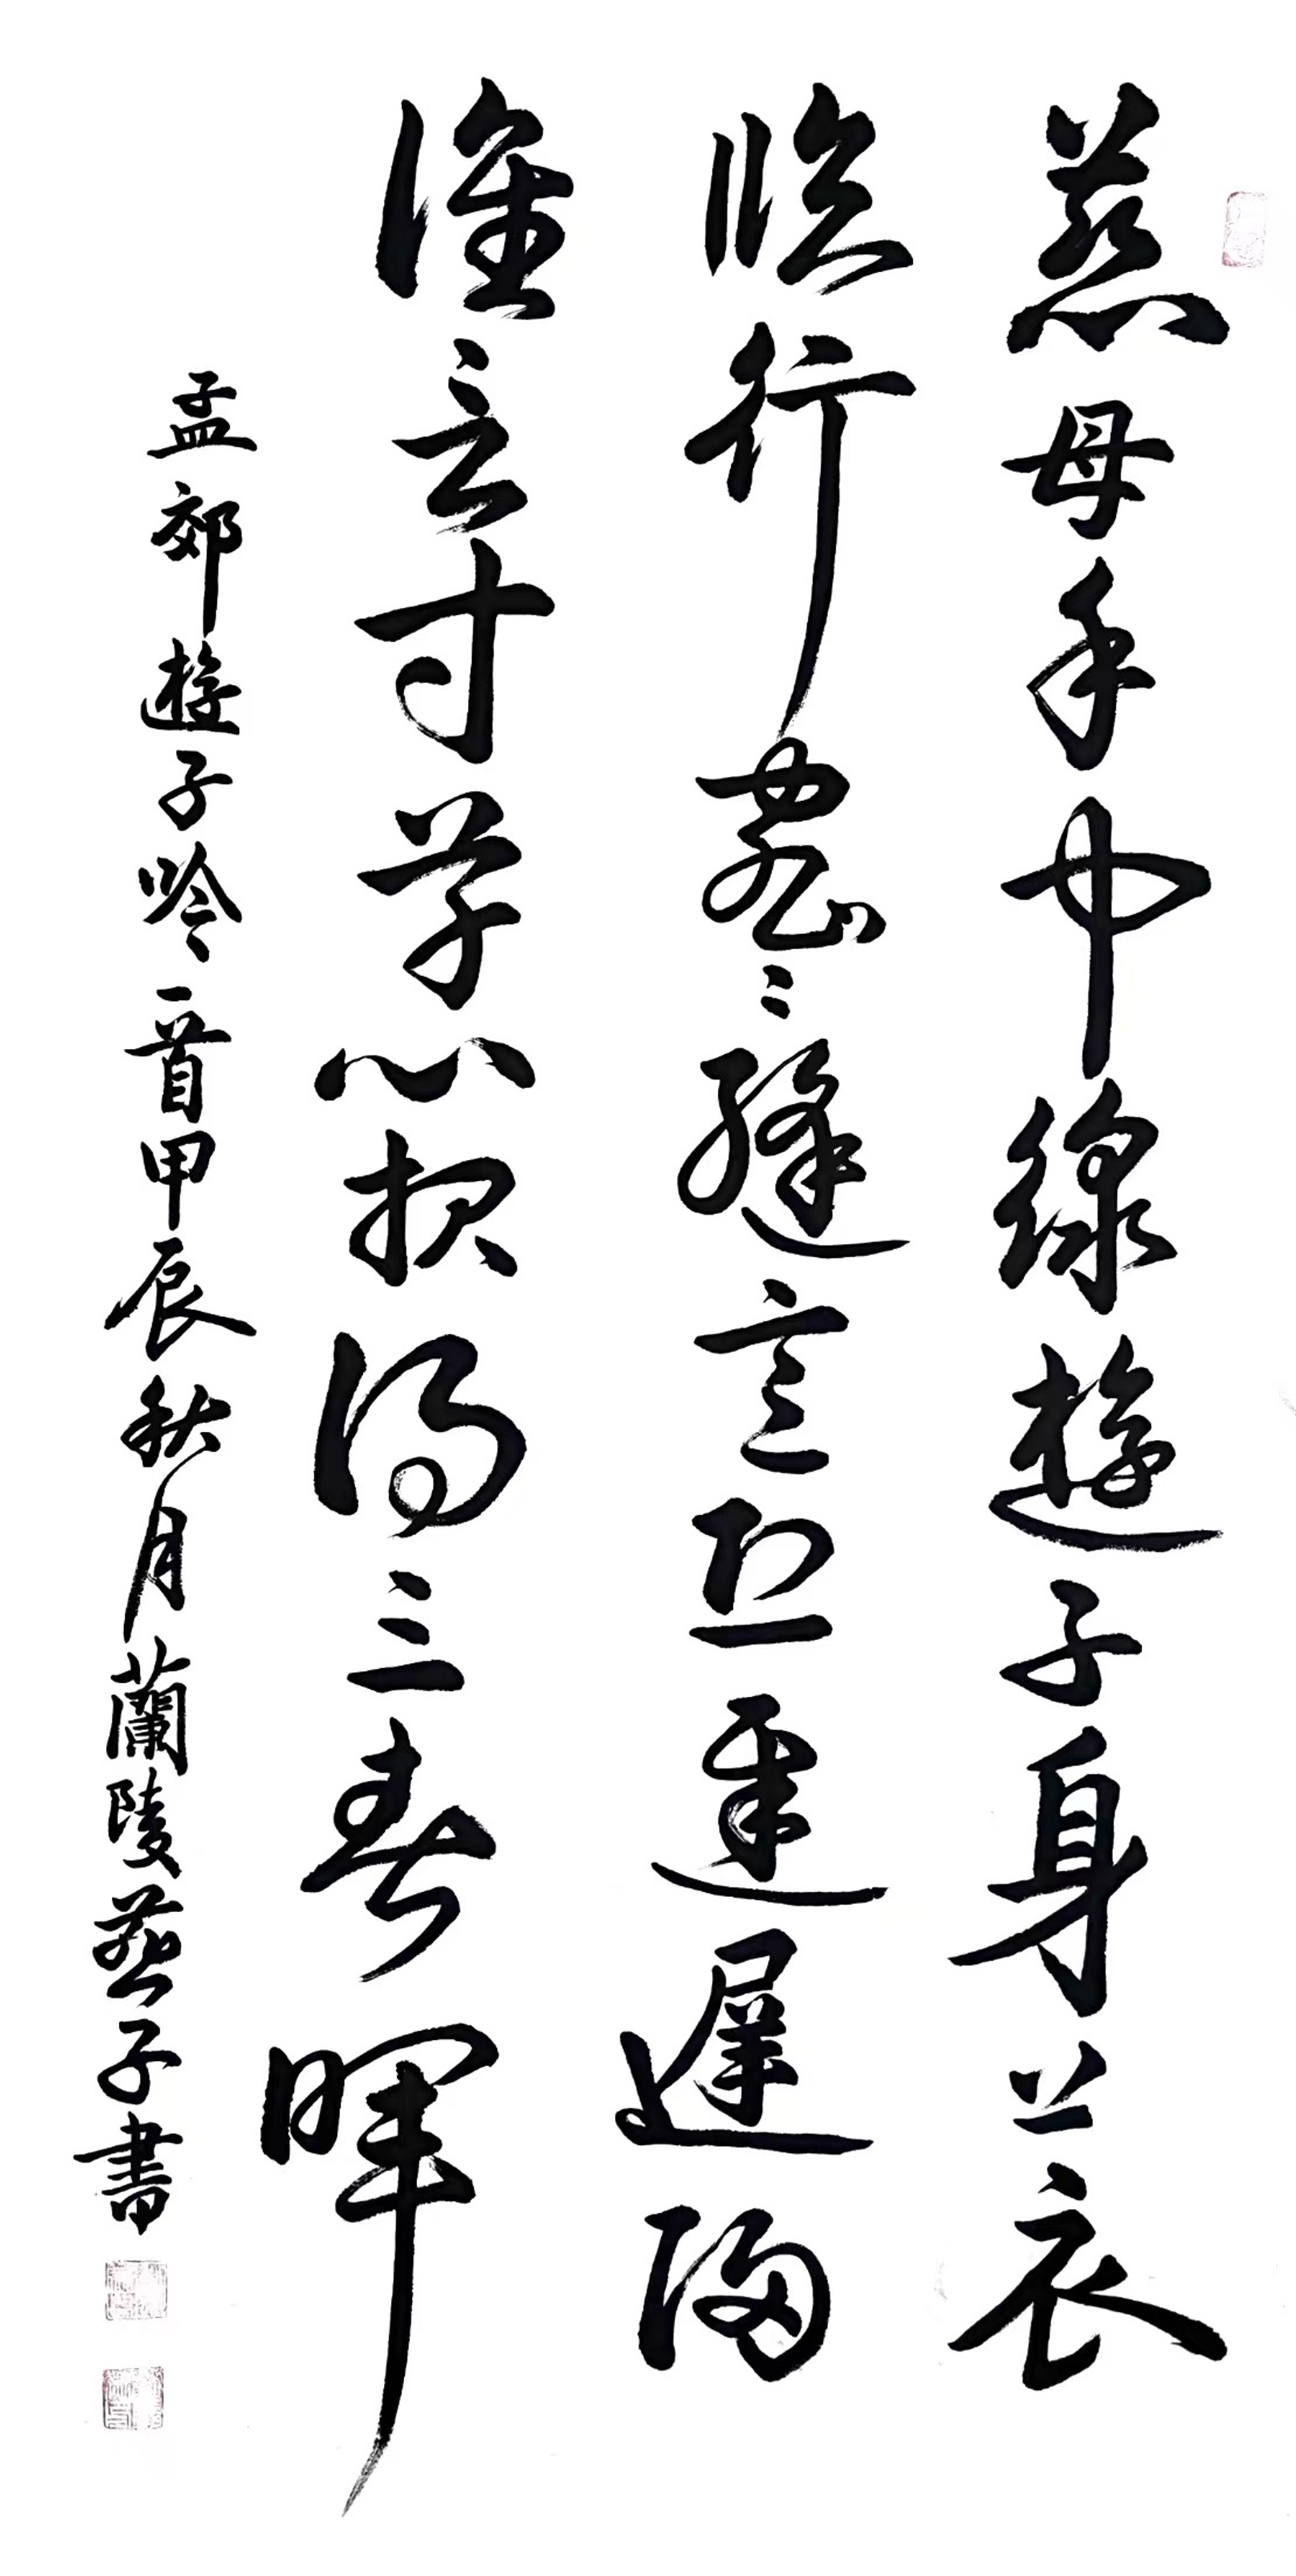 慈母手中線遊子身上衣
臨行密〻縫意恐遲遲歸
誰言寸草心報得三春暉
孟郊遊子吟一首甲辰秋月蘭陵燕子書